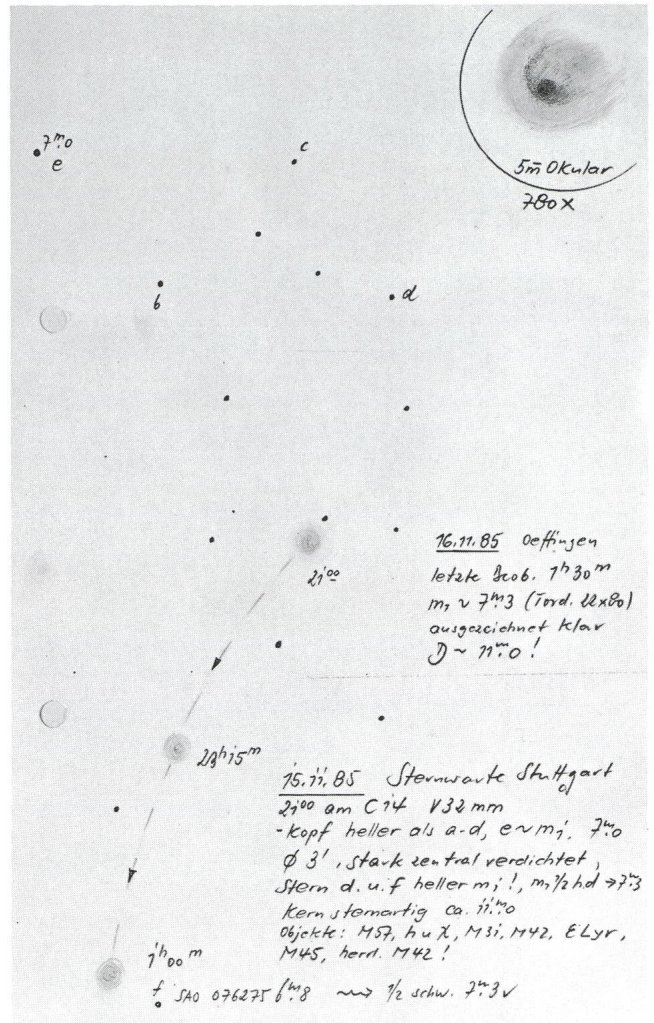 7ᵐ.0
e
c
5m̄ Okular
780 x
b
d
21⁰⁰
16.11.85 Oeffingen
letzte Beob. 1ʰ30ᵐ
m₁ ~ 7ᵐ.3 (Tord. 22x80)
ausgezeichnet klar
D ~ 11ᵐ.0 !
23ʰ15ᵐ
15.11.85 Sternwarte Stuttgart
21⁰⁰ am C14 V32mm
- Kopf heller als a-d, e~m₁. 7ᵐ.0
Ø 3', stark zentral verdichtet,
Stern d. u. f heller m₁!, m₁ 1/2 h.d → 7ᵐ.3
Kern sternartig ca. 11ᵐ.0
Objekte: M57, h u χ, M31, M42, ε Lyr,
M45, herrl. M42!
1ʰ00ᵐ
f SAO 076275 6ᵐ.8 ⟿ 1/2 schw. 7ᵐ.3 v